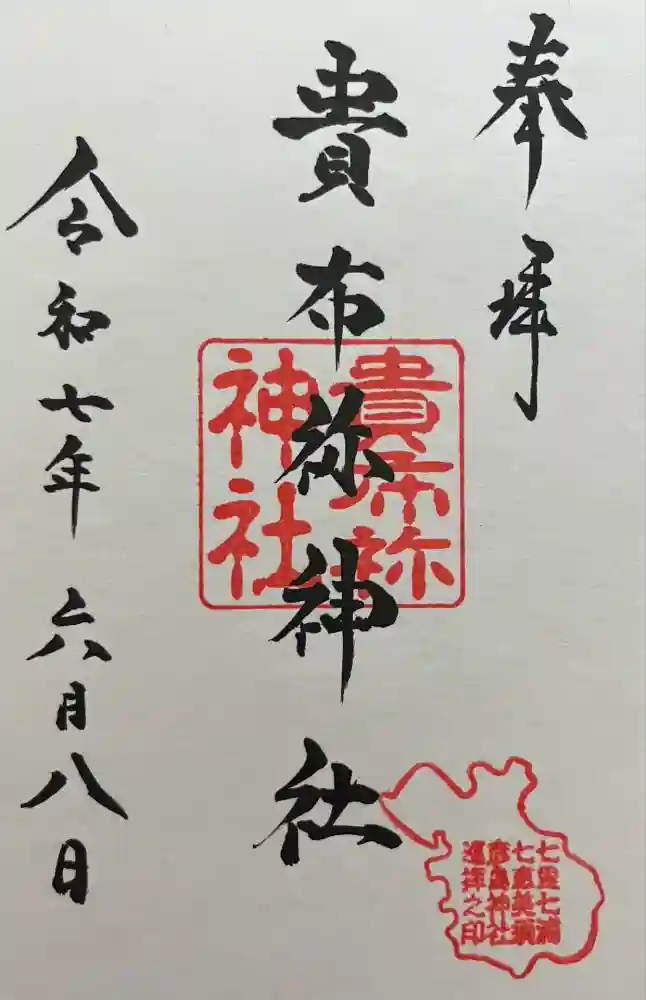 奉拝
貴布祢神社
貴布祢
神社
令和七年 六月八日
七里七浦
七恵美須
彦島神社
巡拝之印